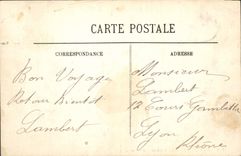 CARTE POSTALE
CORRESPONDANCE
ADRESSE
Bon Voyage
Retour Bientot
Lambert
Monsieur
Lambert
12 Cours Gambetta
Lyon
Rhône